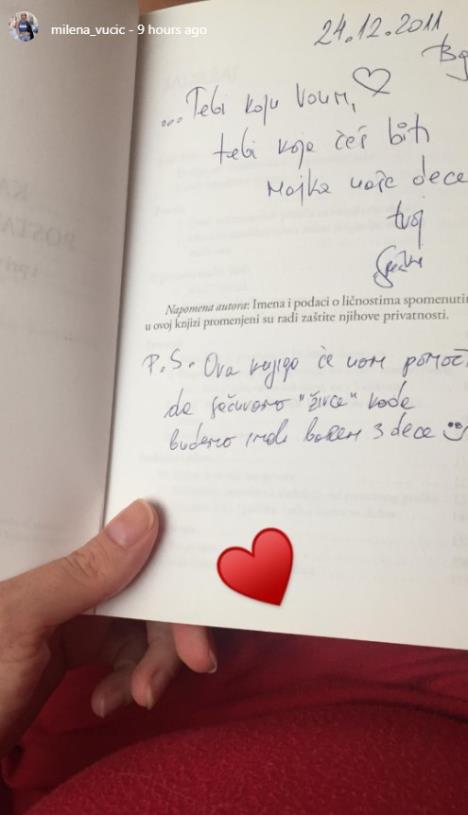 milena_vucic - 9 hours ago
24.12.2011
Bg
...Tebi koju volim,
tebi koja ćeš biti
Majka naše dece
tvoj
Napomena autora: Imena i podaci o ličnostima spomenutim
u ovoj knjizi promenjeni su radi zaštite njihove privatnosti.
P.S. Ova knjiga će nam pomoći
da sačuvamo "živce" kada
budemo imali barem 3 dece